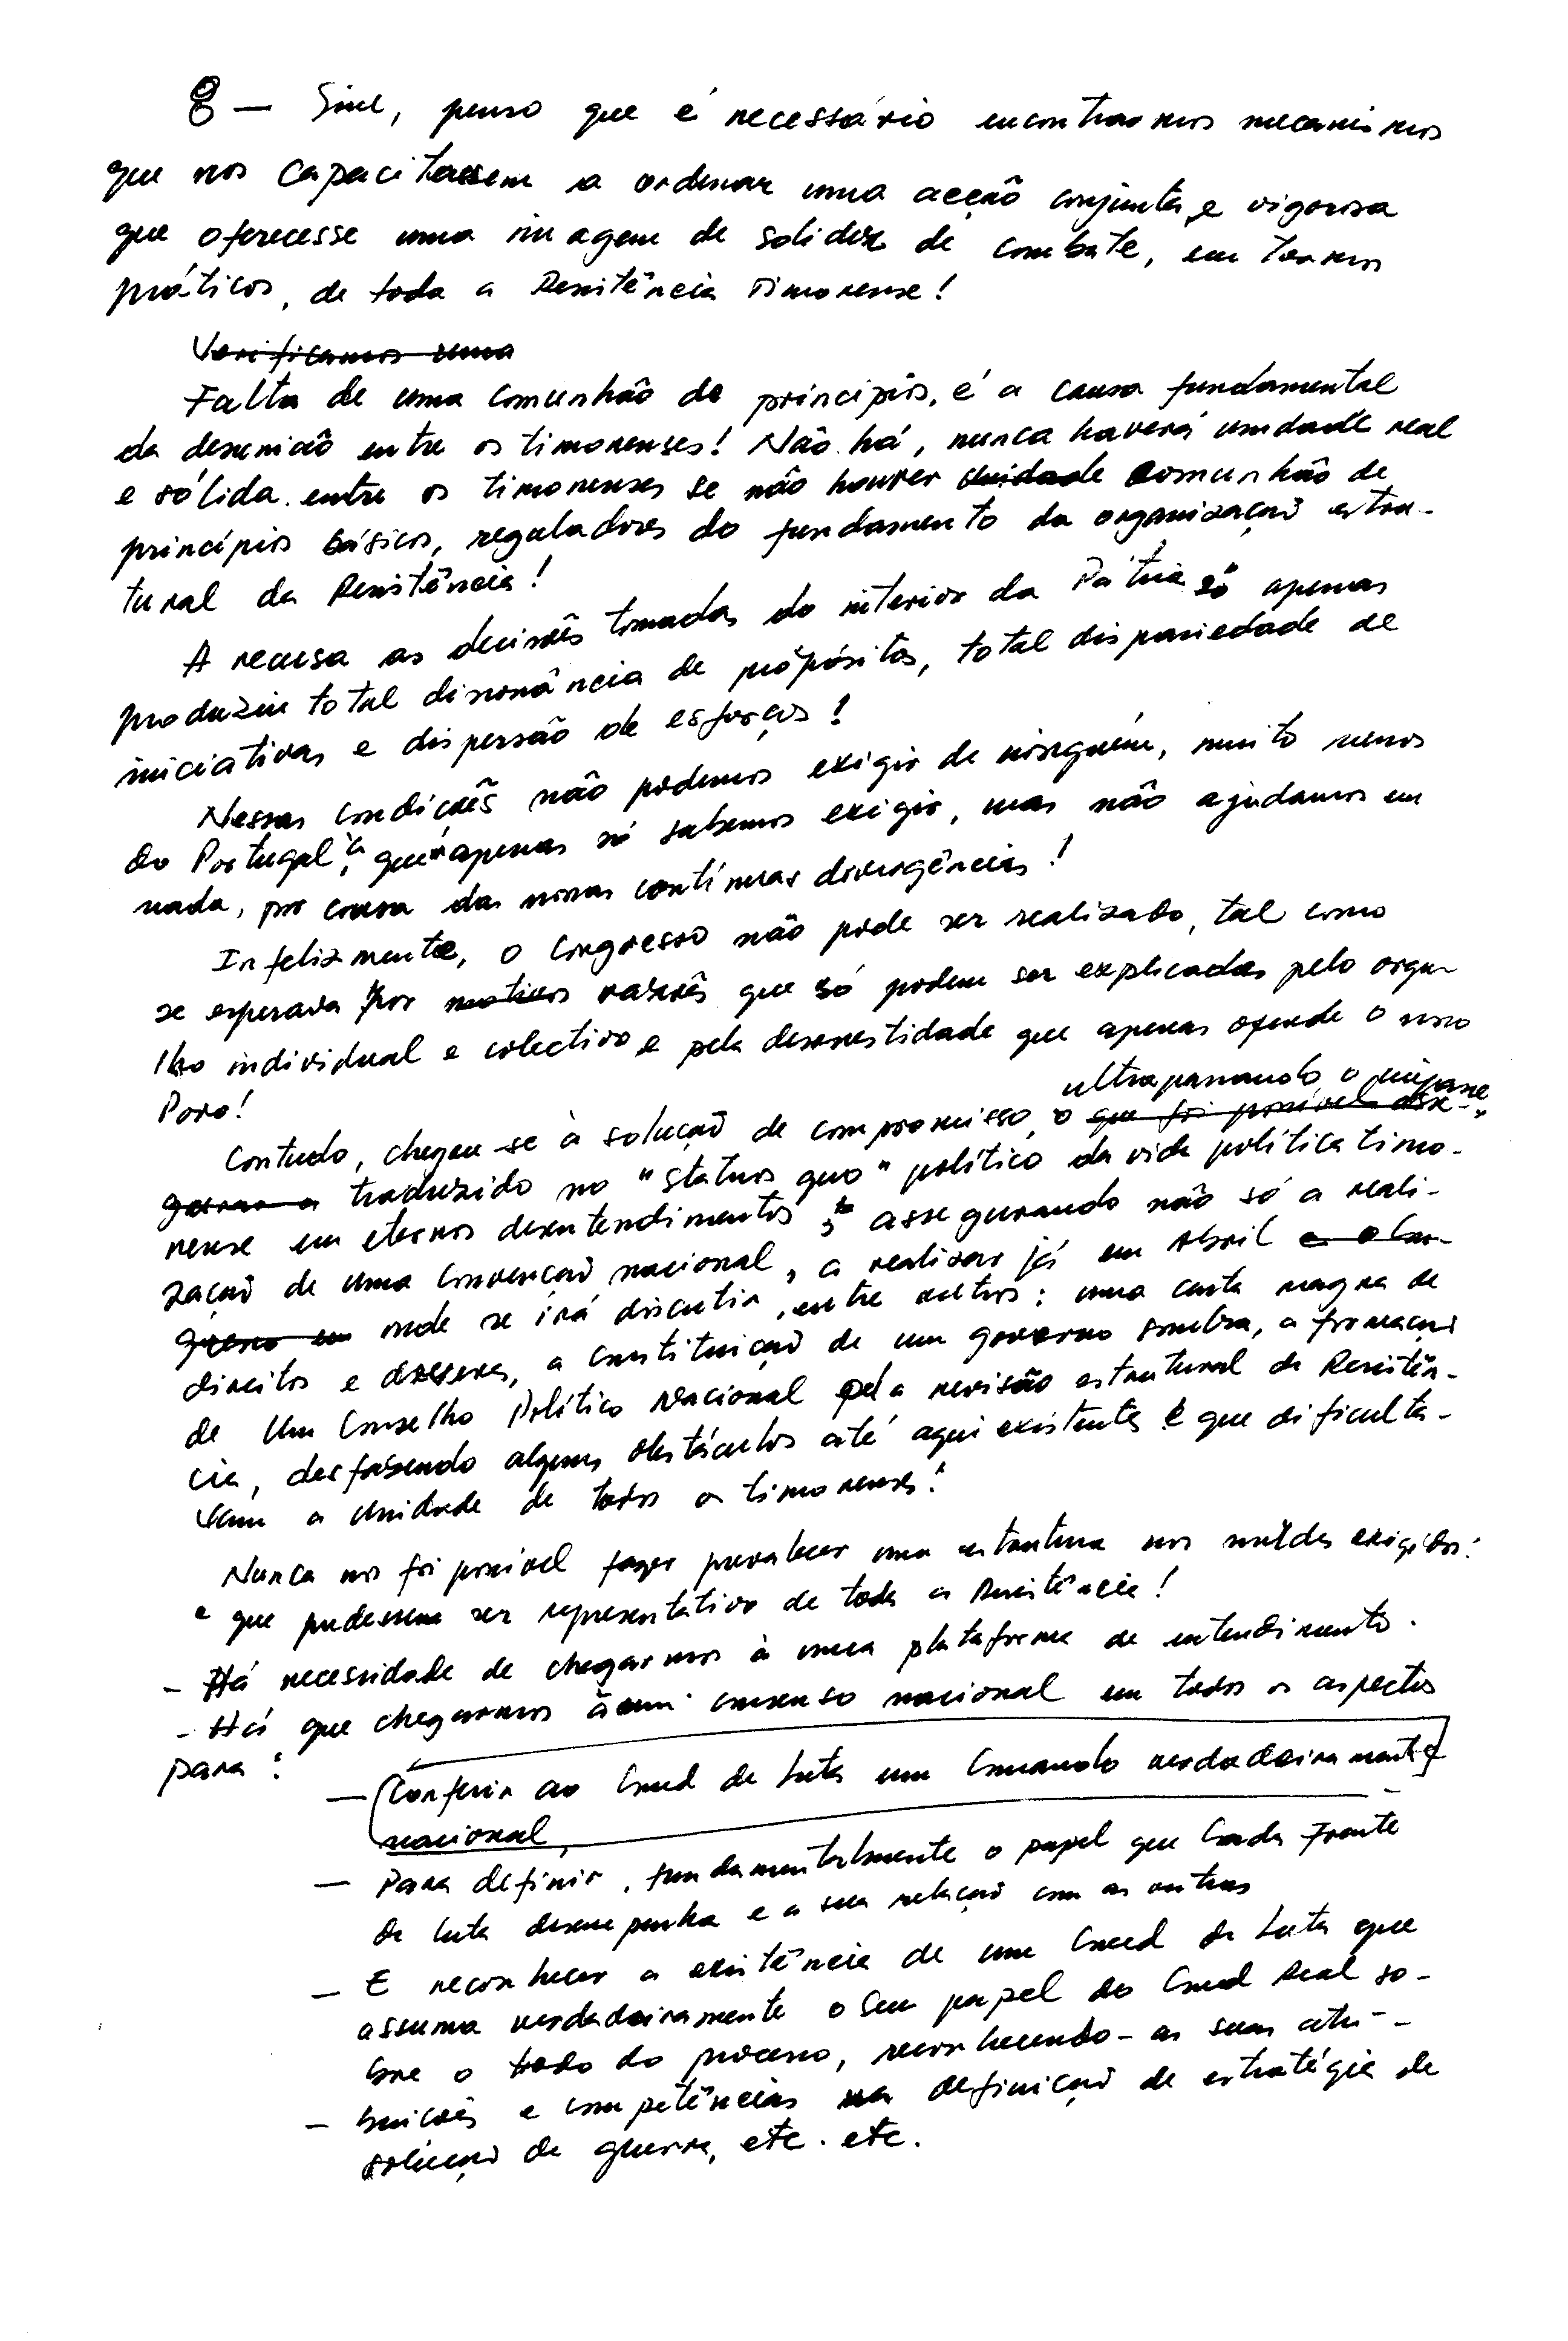 8 — Sim, penso que é necessário encontrarmos mecanismos
que nos capacitassem a ordenar uma acção conjunta e vigorosa
que oferecesse uma imagem de solidez de combate, em termos
práticos, de toda a Resistência Timorense!
Verificamos uma
Falta de uma comunhão de princípios, é a causa fundamental
da desunião entre os timorenses! Não há, nunca haverá unidade real
e sólida entre os timorenses se não houver unidade comunhão de
princípios básicos, reguladores do fundamento da organização estru-
tural da Resistência!
A recusa as decisões tomadas do interior da Pátria só apenas
produziu total dissonância de própósitos, total dispariedade de
iniciativas e dispersão de esforços!
Nessas condições não podemos exigir de ninguém, muito menos
do Portugal, que apenas só sabemos exigir, mas não ajudamos em
nada, por causa das nossas contínuas divergências!
Infelizmente, o Congresso não pode ser realizado, tal como
se esperava por motivos razões que só podem ser explicadas pelo orgu-
lho individual e colectivo e pela desonestidade que apenas ofende o nosso
Povo!
ultrapassando o impasse
Contudo, chegou-se à solução de compromisso, o que foi possível asse-
gurar a traduzido no "status quo" político da vida política timo-
rense em eternos desentendimentos, assegurando não só a reali-
zação de uma Convenção nacional, a realizar já em Abril e o Con-
gresso em onde se irá discutir, entre outros: uma carta magna de
direitos e deveres, a constituição de um governo sombra, a formação
de Um Conselho Político Nacional pela revisão estrutural da Resistên-
cia, desfazendo alguns obstáculos até aqui existentes e que dificulta-
vam a unidade de todos os timorenses!
Nunca nos foi possível fazer prevalecer uma estrutura nos moldes exigidos:
e que pudessem ser representativo de toda a Resistência!
- Há necessidade de chegarmos à uma plataforma de entendimento.
- Há que chegarmos à um consenso nacional em todos os aspectos
para:
— Conferir ao Cmd de Luta um Comando verdadeiramente
nacional,
— Para definir, fundamentalmente o papel que Cada Frente
de luta desempenha e a sua relação com as outras
— E reconhecer a existência de um Cmd da Luta que
assuma verdadeiramente o seu papel do Cmd Real so-
bre o todo do processo, reconhecendo-as suas atri-
- buicões e competências na definição de estratégia de
solução de guerra, etc. etc.